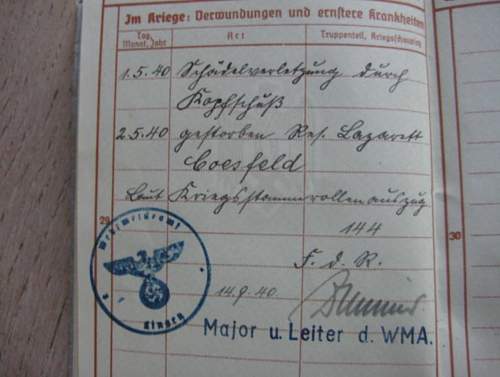 Im Kriege: Verwundungen und ernstere Krankheiten
Tag, Monat, Jahr Art Truppenteil, Kriegsschauplatz
1.5.40 Schädelverletzung durch
Kopfschuß
2.5.40 gestorben Res. Lazarett
Coesfeld
Laut Kriegsstammrollenauszug
144
29 30
F. d. R.
Wehrmeldeamt
14.9.40.
Major u. Leiter d. WMA.